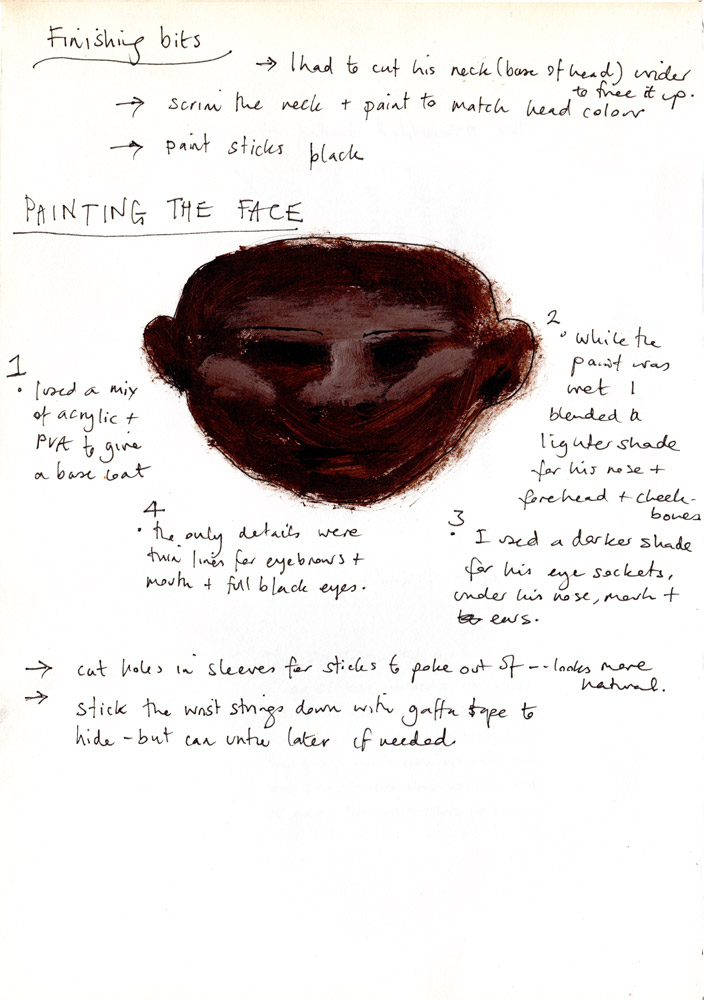 Finishing bits
→ I had to cut his neck (base of head) wider
to free it up.
→ scrim the neck + paint to match head colour
→ paint sticks black
PAINTING THE FACE
1
• I used a mix
of acrylic +
PVA to give
a base coat
2
• While the
paint was
wet I
blended a
lighter shade
for his nose +
forehead + cheek-
bones
3
• I used a darker shade
for his eye sockets,
under his nose, mouth +
ears.
4
• the only details were
thin lines for eyebrows +
mouth + full black eyes.
→ cut holes in sleeves for sticks to poke out of -- looks more
natural.
→ stick the wrist strings down with gaffa tape to
hide - but can untie later if needed.